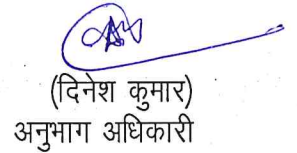 (दिनेश कुमार)
अनुभाग अधिकारी